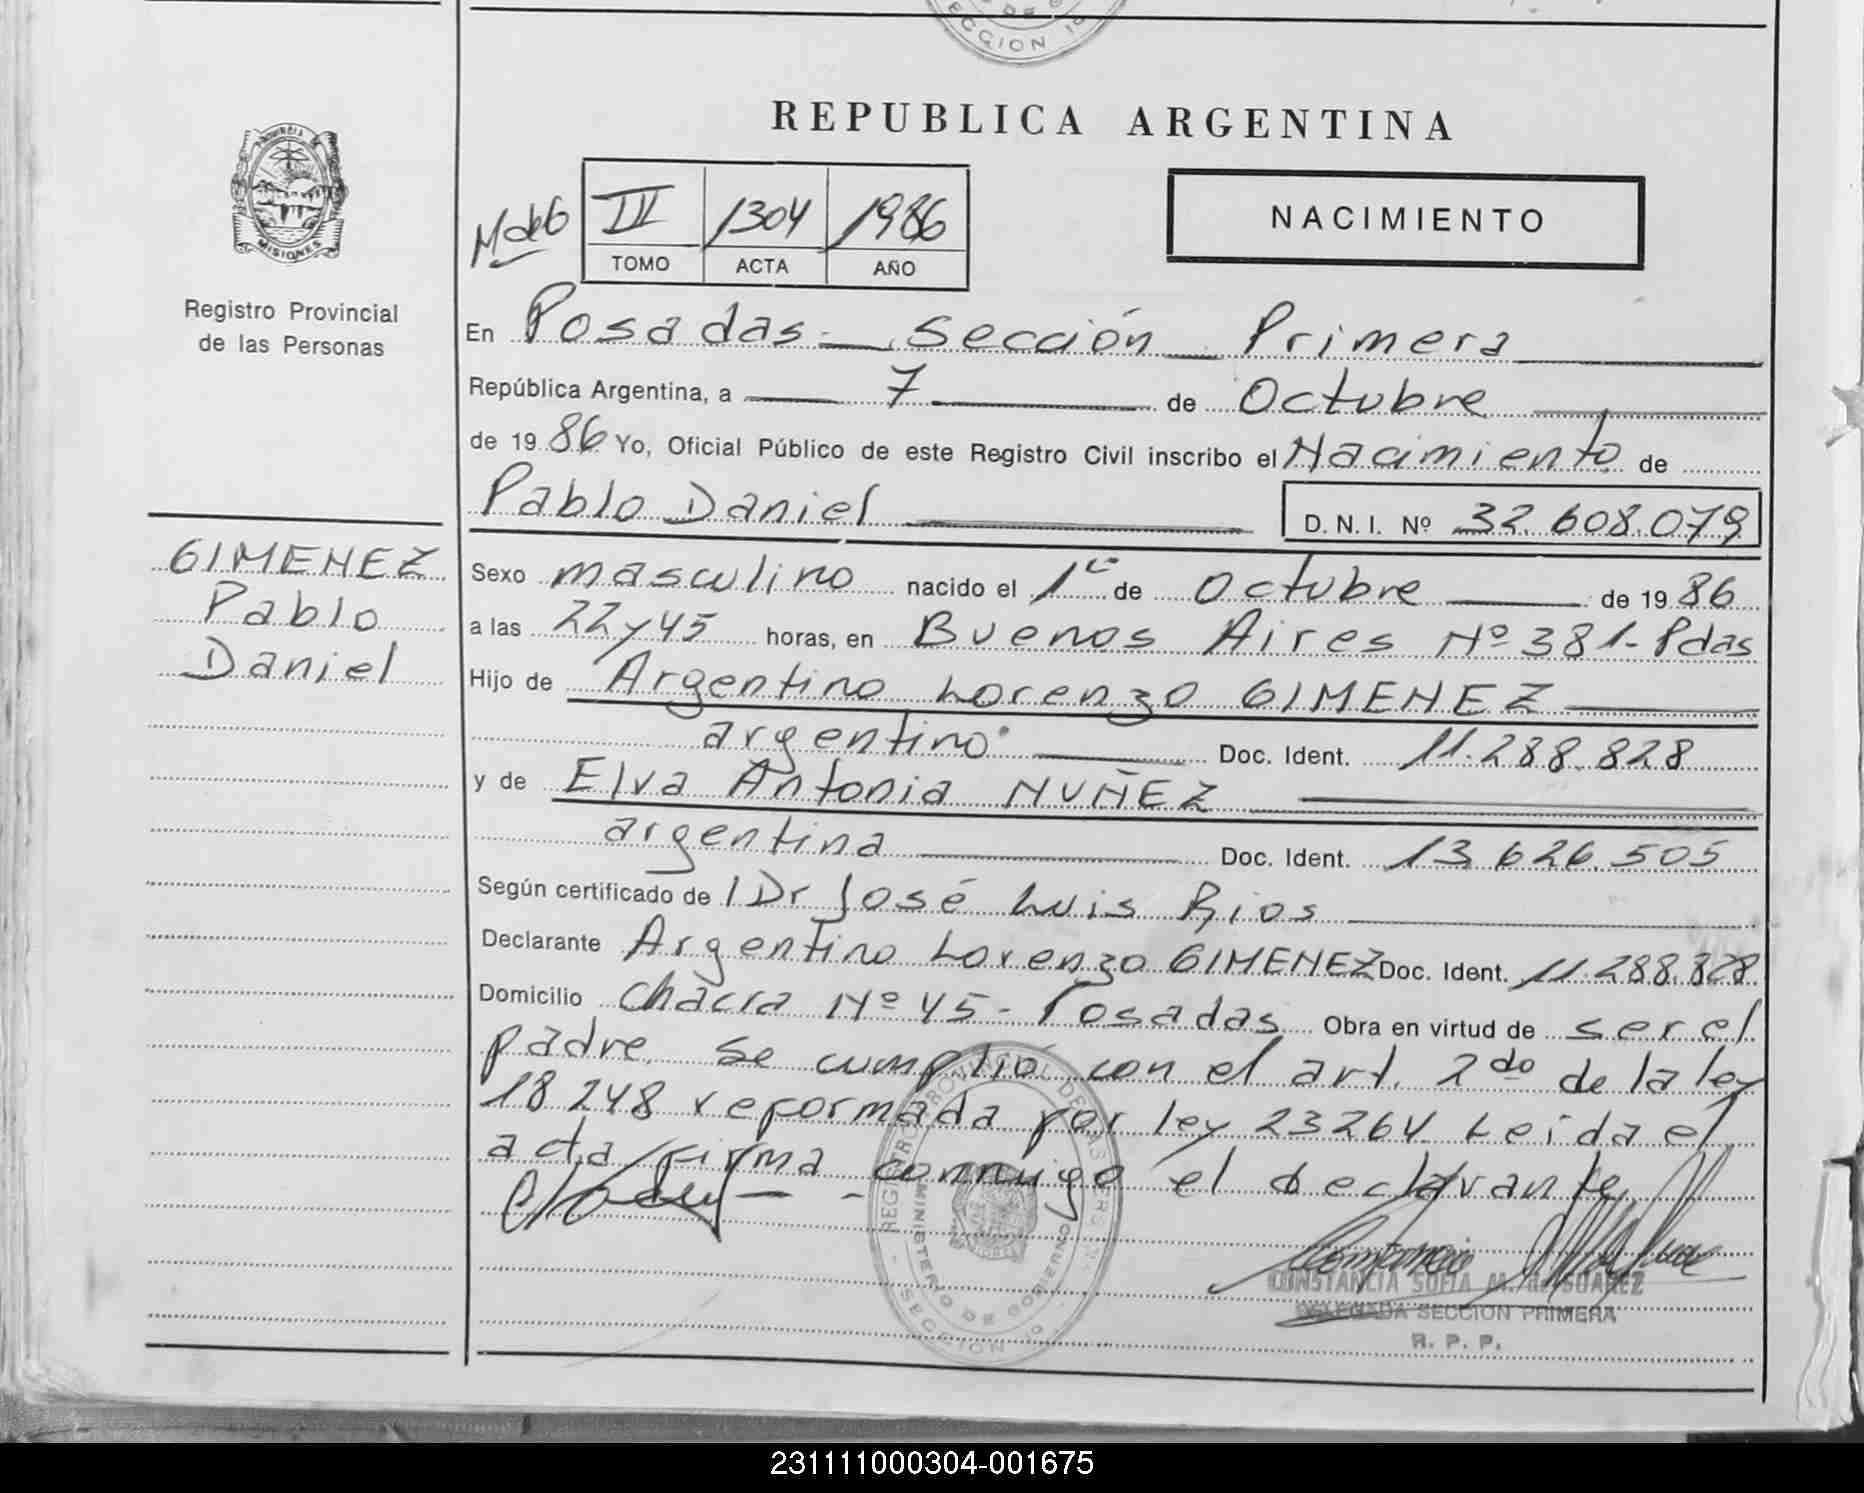 SECCION 1º
REPUBLICA ARGENTINA
PROVINCIA
MISIONES
Registro Provincial
de las Personas
M de G
IV 1304 1986
TOMO ACTA AÑO
NACIMIENTO
En Posadas - Sección Primera
República Argentina, a 7 de Octubre
de 1986 Yo, Oficial Público de este Registro Civil inscribo el Nacimiento de
Pablo Daniel D. N. I. Nº 32.608.079
GIMENEZ
Pablo
Daniel
Sexo masculino nacido el 1º de Octubre de 1986
a las 22 y 45 horas, en Buenos Aires Nº 381 - Pdas
Hijo de Argentino Lorenzo GIMENEZ
argentino Doc. Ident. 11.288.828
y de Elva Antonia NUÑEZ
argentina Doc. Ident. 13.626.505
Según certificado de l Dr José Luis Rios
Declarante Argentino Lorenzo GIMENEZ Doc. Ident. 11.288.828
Domicilio Chacra Nº 45 - Posadas Obra en virtud de ser el
padre. Se cumplió con el art. 2do de la ley
18248 reformada por ley 23264. Leida el
acta firma conmigo el declarante
REGISTRO PROVINCIAL DE LAS PERSONAS
MINISTERIO DE GOBIERNO
SECCION 1º
CONSTANCIA SOFIA M. de SUAREZ
DELEGADA SECCION PRIMERA
R. P. P.
231111000304-001675